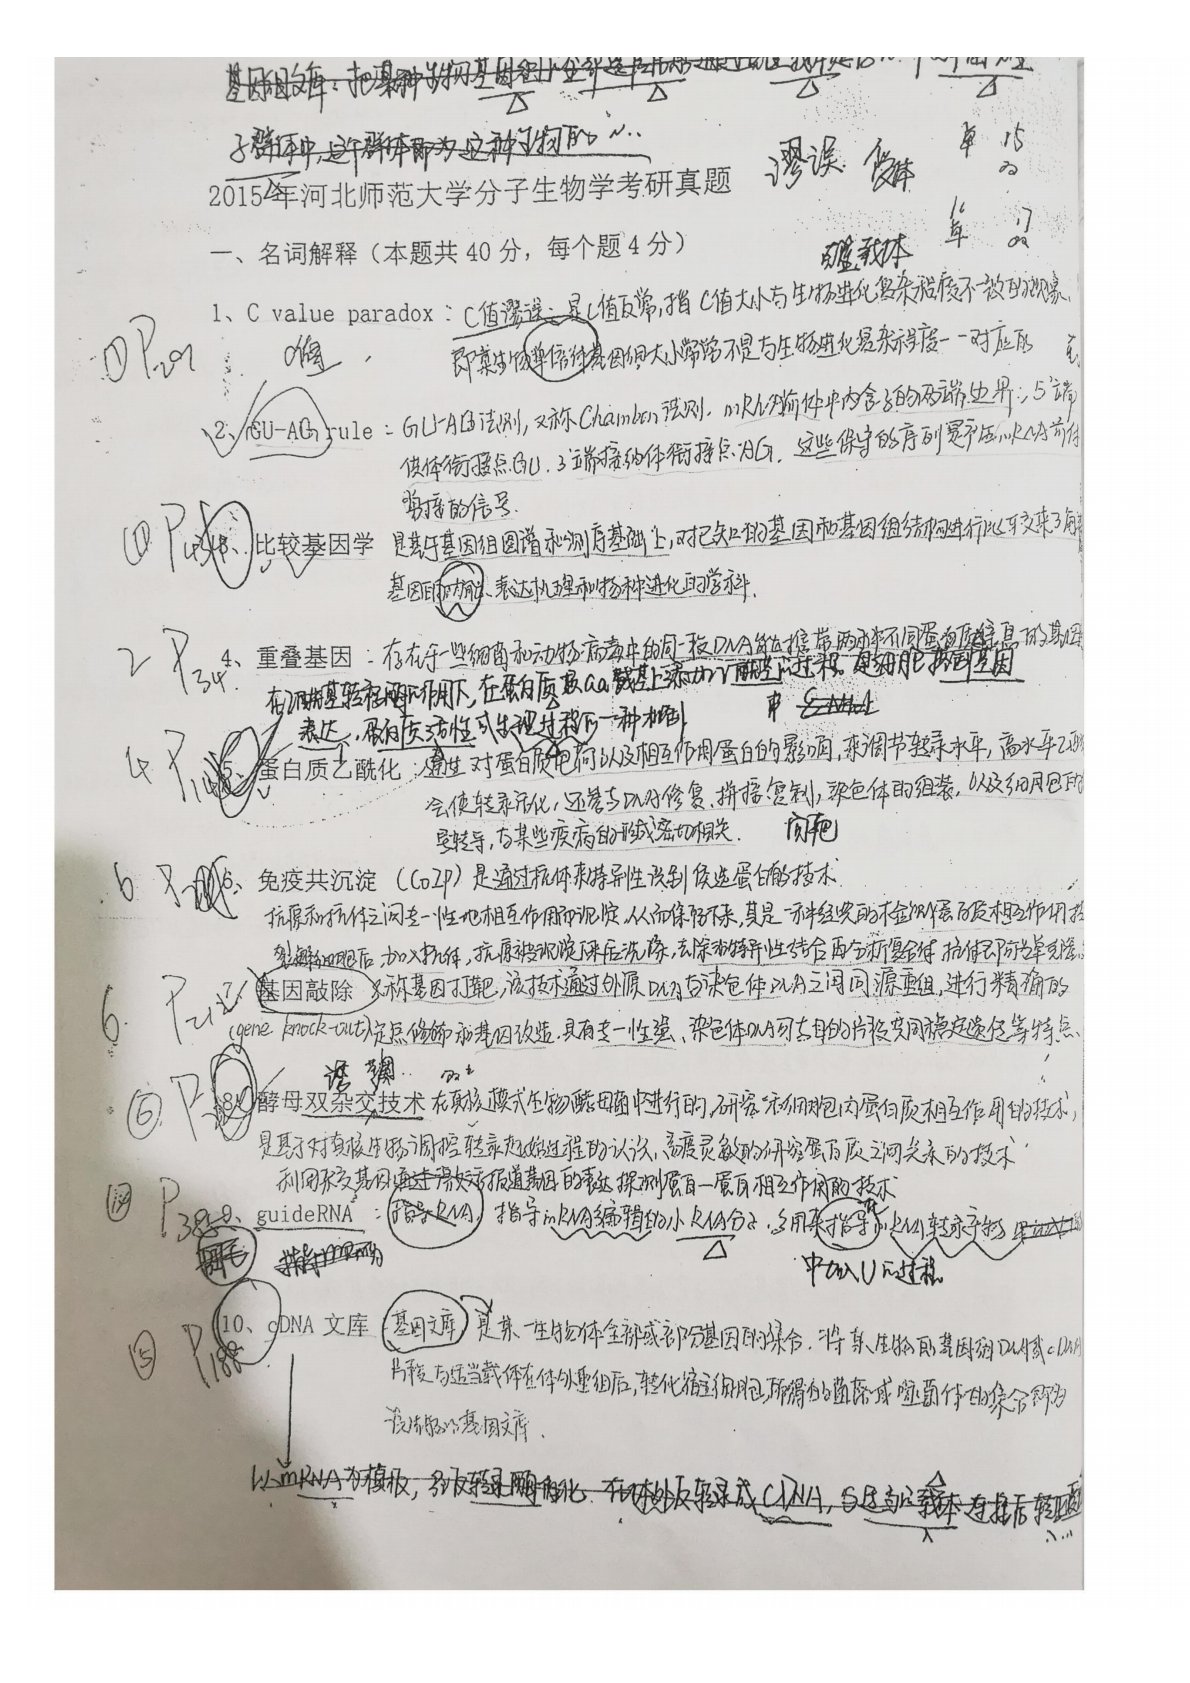 基因组文库：把某种生物基因组
子群体中，这个群体即为这种生物的~..
谬误 受体 年 15
2015年河北师范大学分子生物学考研真题
16 年 17
一、名词解释（本题共40分，每个题4分） 载体
1、C value paradox：C值谬误：是C值反常，指C值大小与生物进化复杂程度不一致的现象，
① P 即某生物单倍体基因组大小常常不是与生物进化复杂程度一一对应的
C值
2、GU-AG rule：GU-AG法则，又称Chambon法则，mRNA前体中内含子的两端边界：5'端
供体衔接点GU，3'端接纳体衔接点为AG，这些保守的序列是mRNA前体
剪接的信号.
① P 3、比较基因学 是基于基因组图谱和测序基础上，对已知的基因和基因组结构进行比较来了解
基因的功能、表达机理和物种进化的学科.
2 P34 4、重叠基因：存在于一些细菌和动物病毒中的同一段DNA能携带两种不同蛋白质信息的基因
在乙酰基转移酶作用下，在蛋白质
表达，蛋白质活性或生理过程的一种机制
4 P 5、蛋白质乙酰化：通过对蛋白质电荷以及相互作用蛋白的影响，来调节转录水平，高水平乙酰
会使转录活化，还参与DNA修复、拼接、复制，染色体的组装，以及细胞
信号转导，与某些疾病的形成密切相关.
6 P 6、免疫共沉淀（CoIP）是通过抗体来特异性识别候选蛋白的技术
抗原和抗体之间专一性地相互作用而沉淀，从而保留下来，其是一种经典的检测蛋白质相互作用
裂解细胞后，加入抗体，抗原被沉淀下来后洗涤，去除非特异性结合再分析复合体
6. P212 7、基因敲除 又称基因打靶，该技术通过外源DNA与染色体DNA之间同源重组，进行精确的
(gene knock-out)定点修饰和基因改造，具有专一性强、染色体DNA可与目的片段共同稳定遗传等特点.
⑥ P 8、酵母双杂交技术 在真核模式生物酵母菌中进行的，研究活细胞内蛋白质相互作用的技术，
是基于对真核生物调控转录起始过程的认识，高度灵敏的研究蛋白质之间关系的技术
利用杂交基因通过激活报道基因的表达探测蛋白—蛋白相互作用的技术
P 9、guideRNA：指导RNA，指导mRNA编辑的小RNA分子，多用来指导mRNA转录产物
中加入U的过程
10、cDNA文库 基因文库 是某一生物体全部或部分基因的集合，将某生物的基因组DNA或cDNA
⑤ P188 片段与适当载体在体外重组后，转化宿主细胞，所得的菌落或噬菌体的集合即为
该生物的基因文库.
以mRNA为模板，经反转录酶催化，在体外反转录成cDNA，与适当的载体连接后转